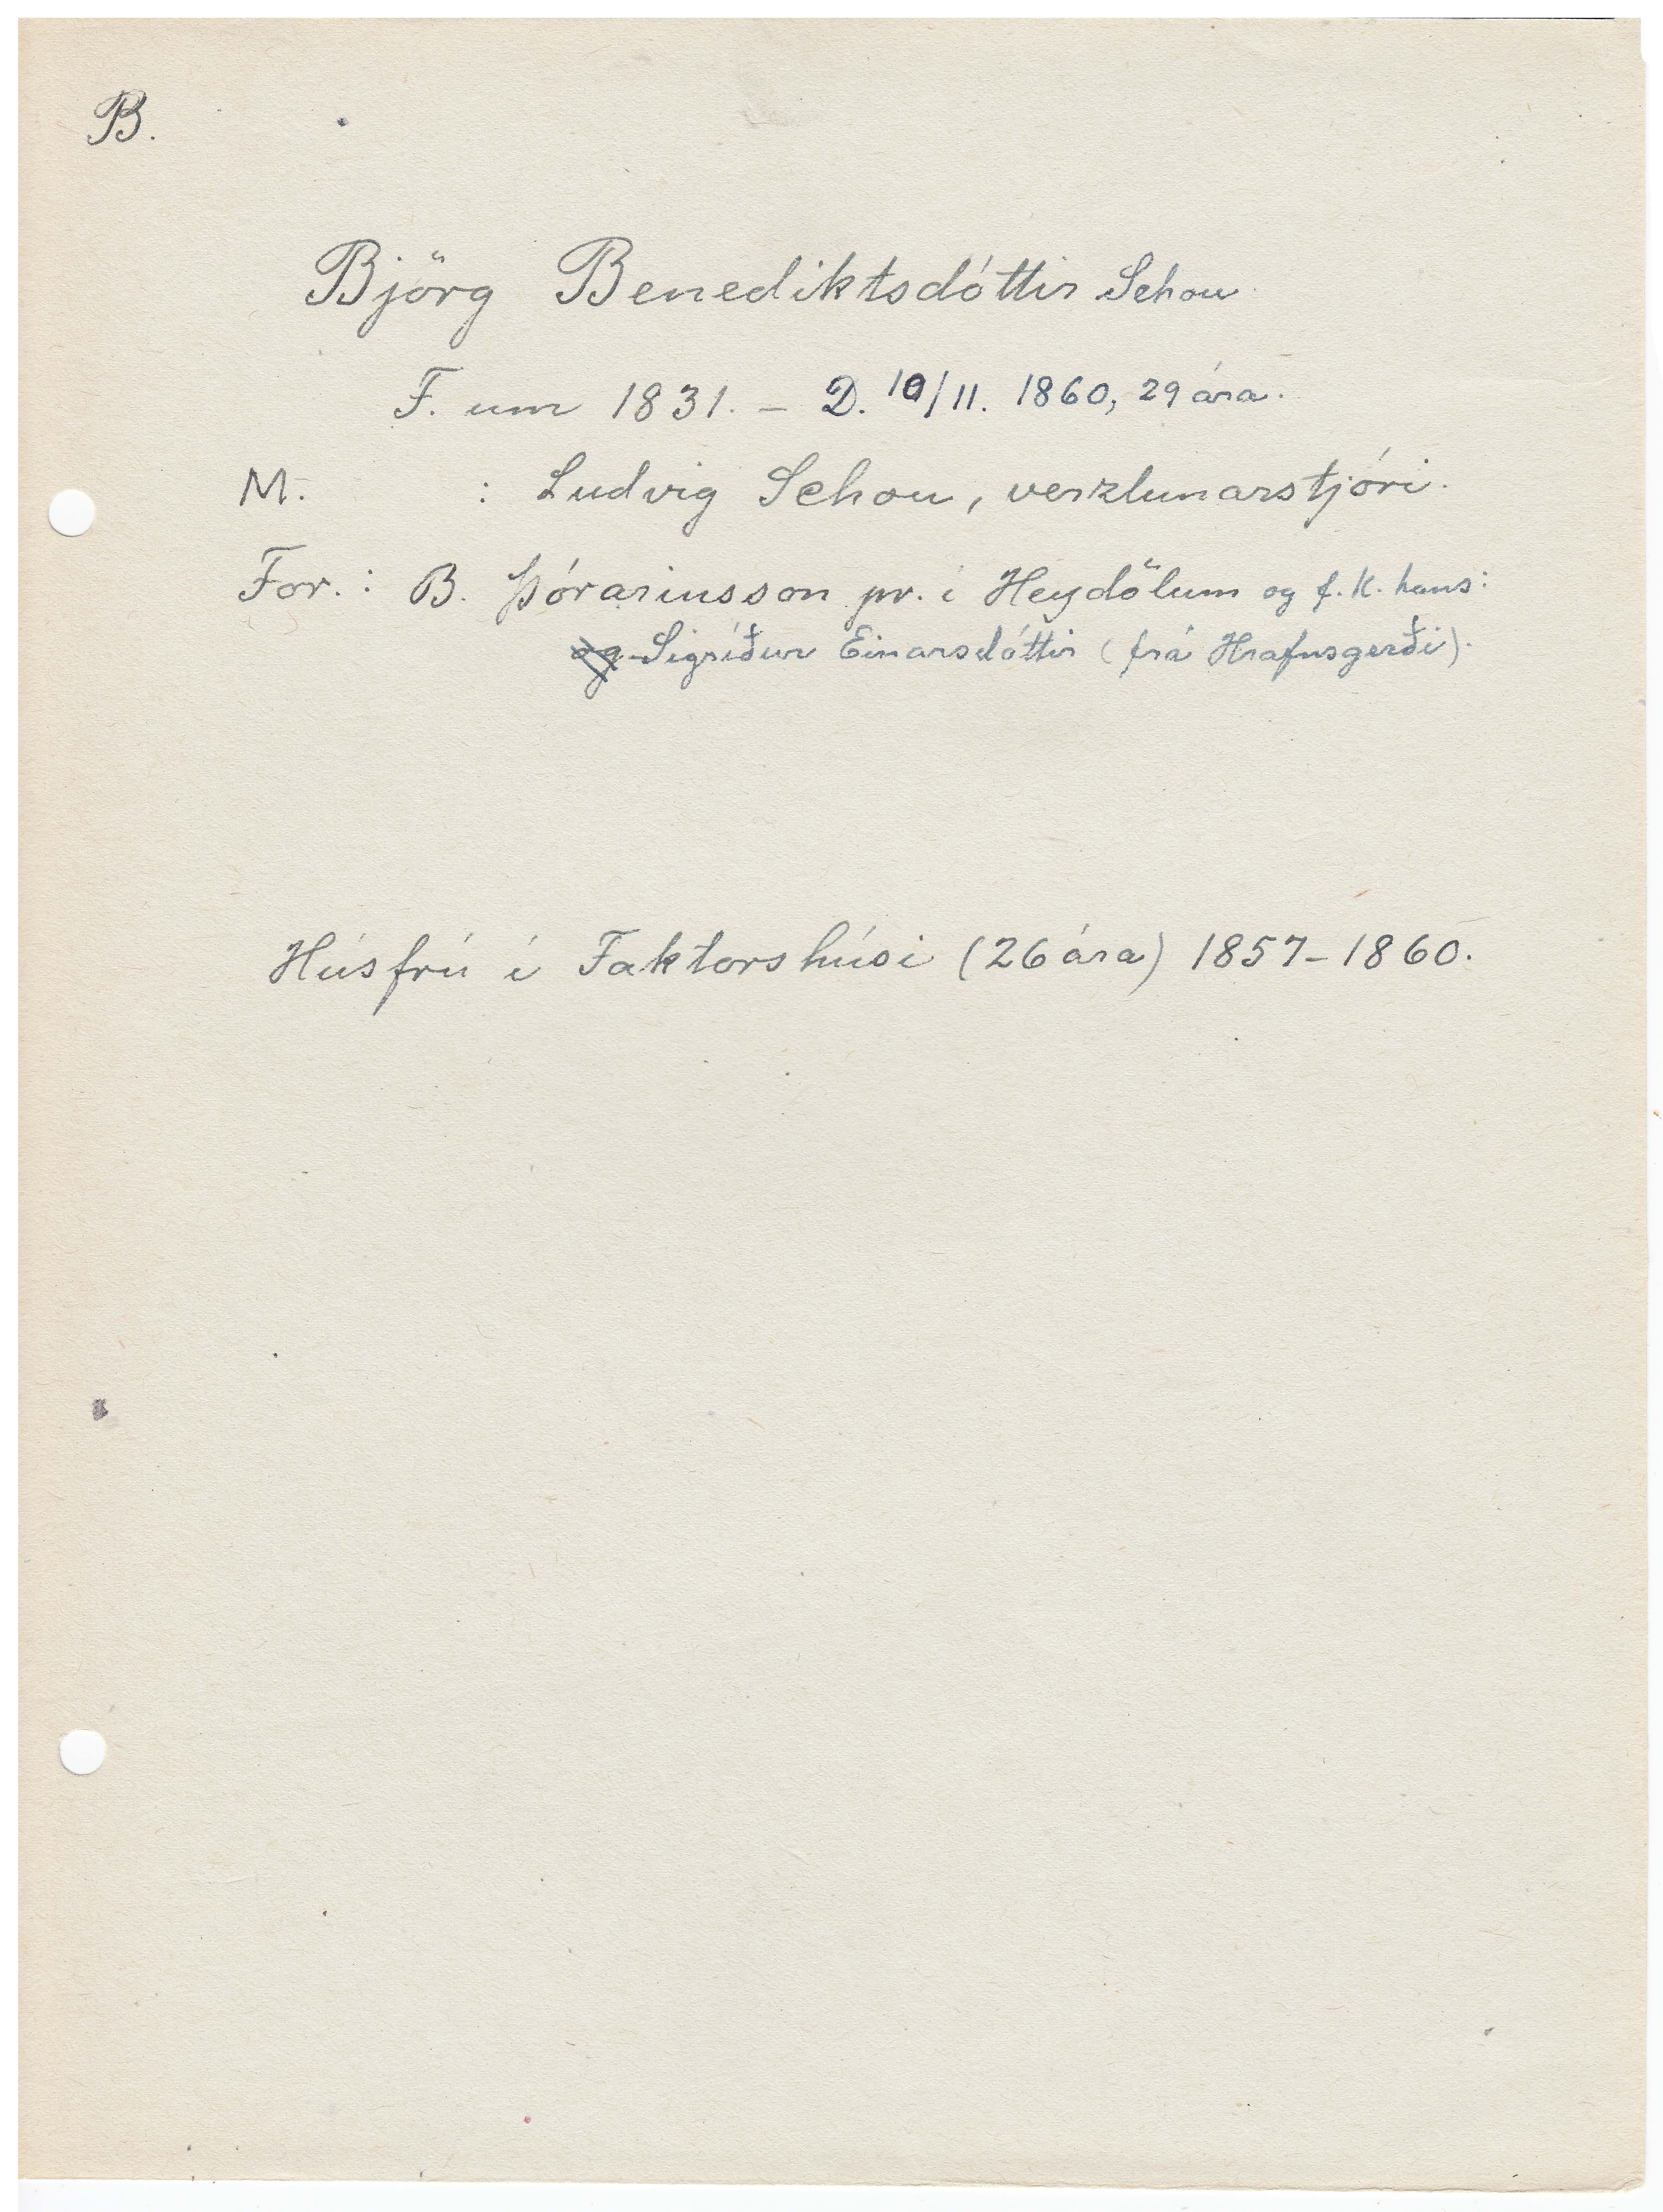 B.
Björg Benediktsdóttir Schou
F. um 1831. – D. 10/11. 1860, 29 ára.
M. : Ludvig Schou, verzlunarstjóri.
For.: B. Þórarinsson pr. í Heydölum og f. k. hans:
og Sigríður Einarsdóttir (frá Hrafnsgerði).
Húsfrú í Faktorshúsi (26 ára) 1857–1860.